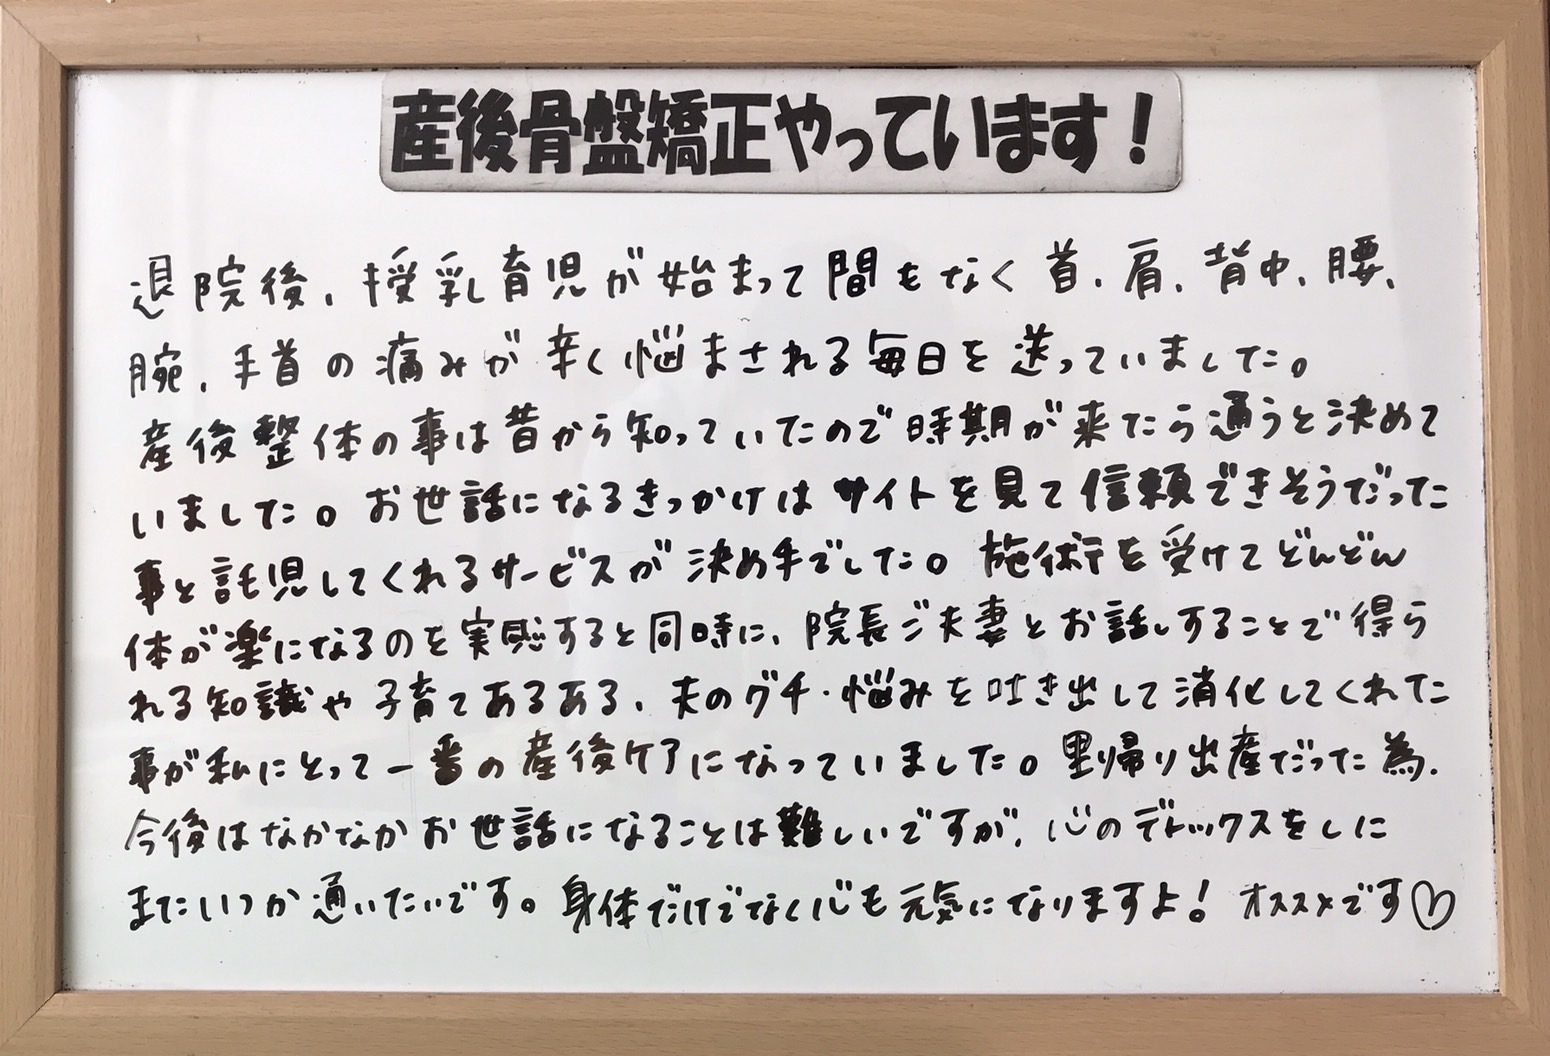 産後骨盤矯正やっています!
退院後、授乳育児が始まって間もなく首、肩、背中、腰、
腕、手首の痛みが辛く悩まされる毎日を送っていました。
産後整体の事は昔から知っていたので時期が来たら通うと決めて
いました。お世話になるきっかけはサイトを見て信頼できそうだった
事と託児してくれるサービスが決め手でした。施術を受けてどんどん
体が楽になるのを実感すると同時に、院長ご夫妻とお話しすることで得ら
れる知識や子育てあるある、夫のグチ・悩みを吐き出して消化してくれた
事が私にとって一番の産後ケアになっていました。里帰り出産だった為、
今後はなかなかお世話になることは難しいですが、心のデトックスをしに
またいつか通いたいです。身体だけでなく心も元気になりますよ!オススメです♡